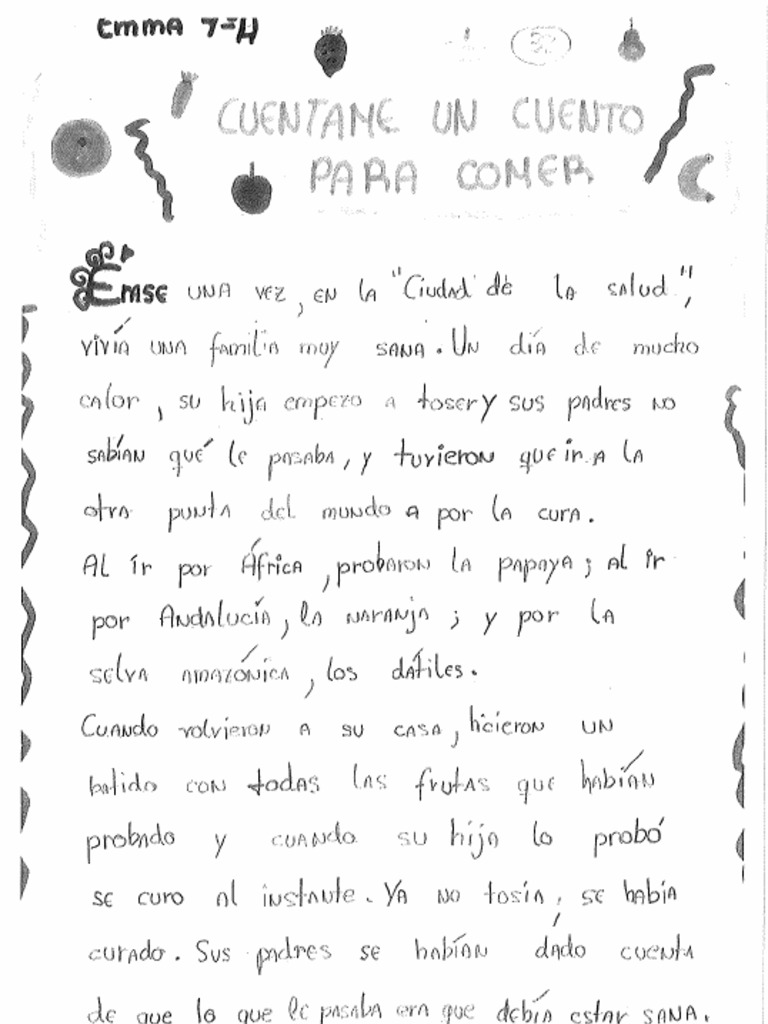 EMMA 7=H
32
CUENTAME UN CUENTO
PARA COMER
Erase UNA VEZ, EN LA "Ciudad de la salud",
vivía una familia muy sana. Un día de mucho
calor, su hija empezo a toser y sus padres no
sabían qué le pasaba, y tuvieron que ir a la
otra punta del mundo a por la cura.
Al ir por África, probaron la papaya; al ir
por Andalucía, la naranja; y por la
selva amazónica, los dátiles.
Cuando volvieron a su casa, hicieron un
batido con todas las frutas que habían
probado y cuando su hija lo probó
se curo al instante. Ya no tosía, se había
curado. Sus padres se habían dado cuenta
de que lo que le pasaba era que debía estar sana.